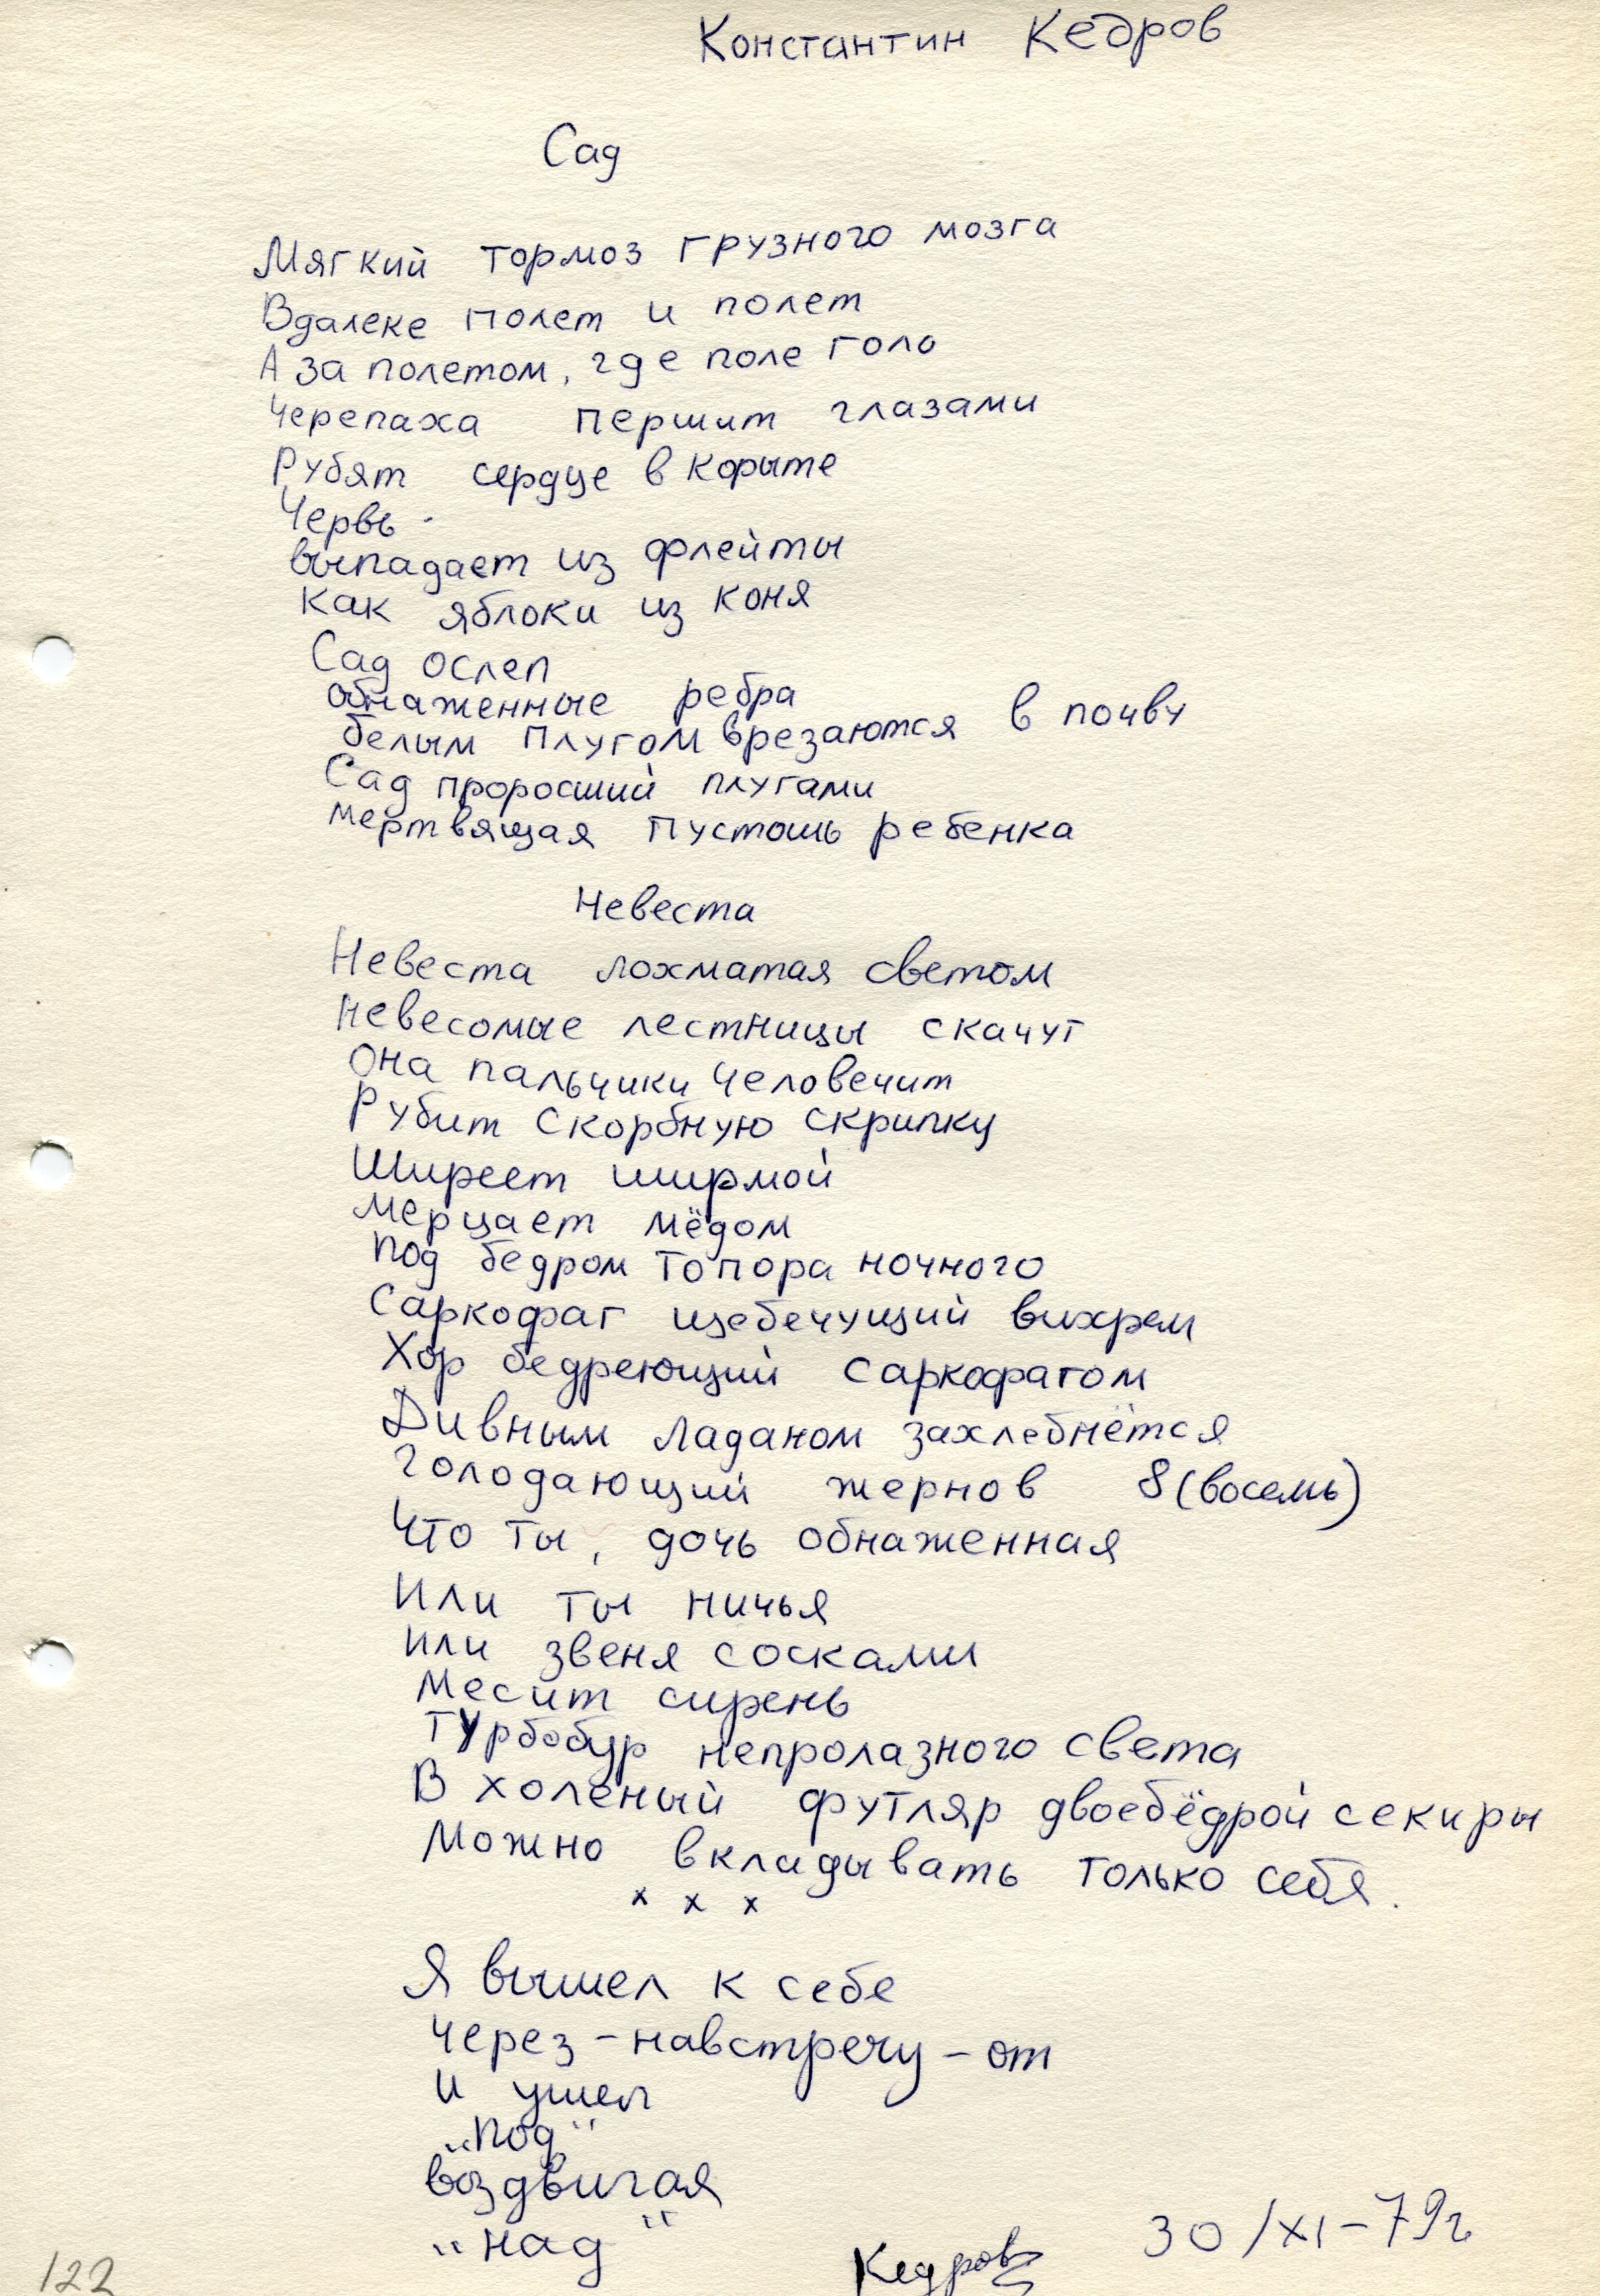 Константин Кедров
Сад
Мягкий тормоз грузного мозга
Вдалеке полет и полет
А за полетом, где поле голо
Черепаха першит глазами
Рубят сердце в корыте
Червь -
выпадает из флейты
как яблоки из коня
Сад ослеп
обнаженные ребра
белым плугом врезаются в почву
Сад проросший плугами
мертвящая пустошь ребенка
Невеста
Невеста лохматая светом
Невесомые лестницы скачут
Она пальчики человечит
Рубит скорбную скрипку
Ширеет ширмой
Мерцает мёдом
под бедром топора ночного
Саркофаг щебечущий вихрем
Хор бедреющий саркофагом
Дивным ладаном захлебнётся
голодающий жернов 8 (восемь)
Что ты, дочь обнаженная
Или ты ничья
или звеня сосками
Месит сирень
Турбобур непролазного света
В холеный футляр двоебёдрой секиры
Можно вкладывать только себя.
х х х
Я вышел к себе
Через - навстречу - от
И ушел
"под"
воздвигая
"над"
Кедров
30/XI-79г
122